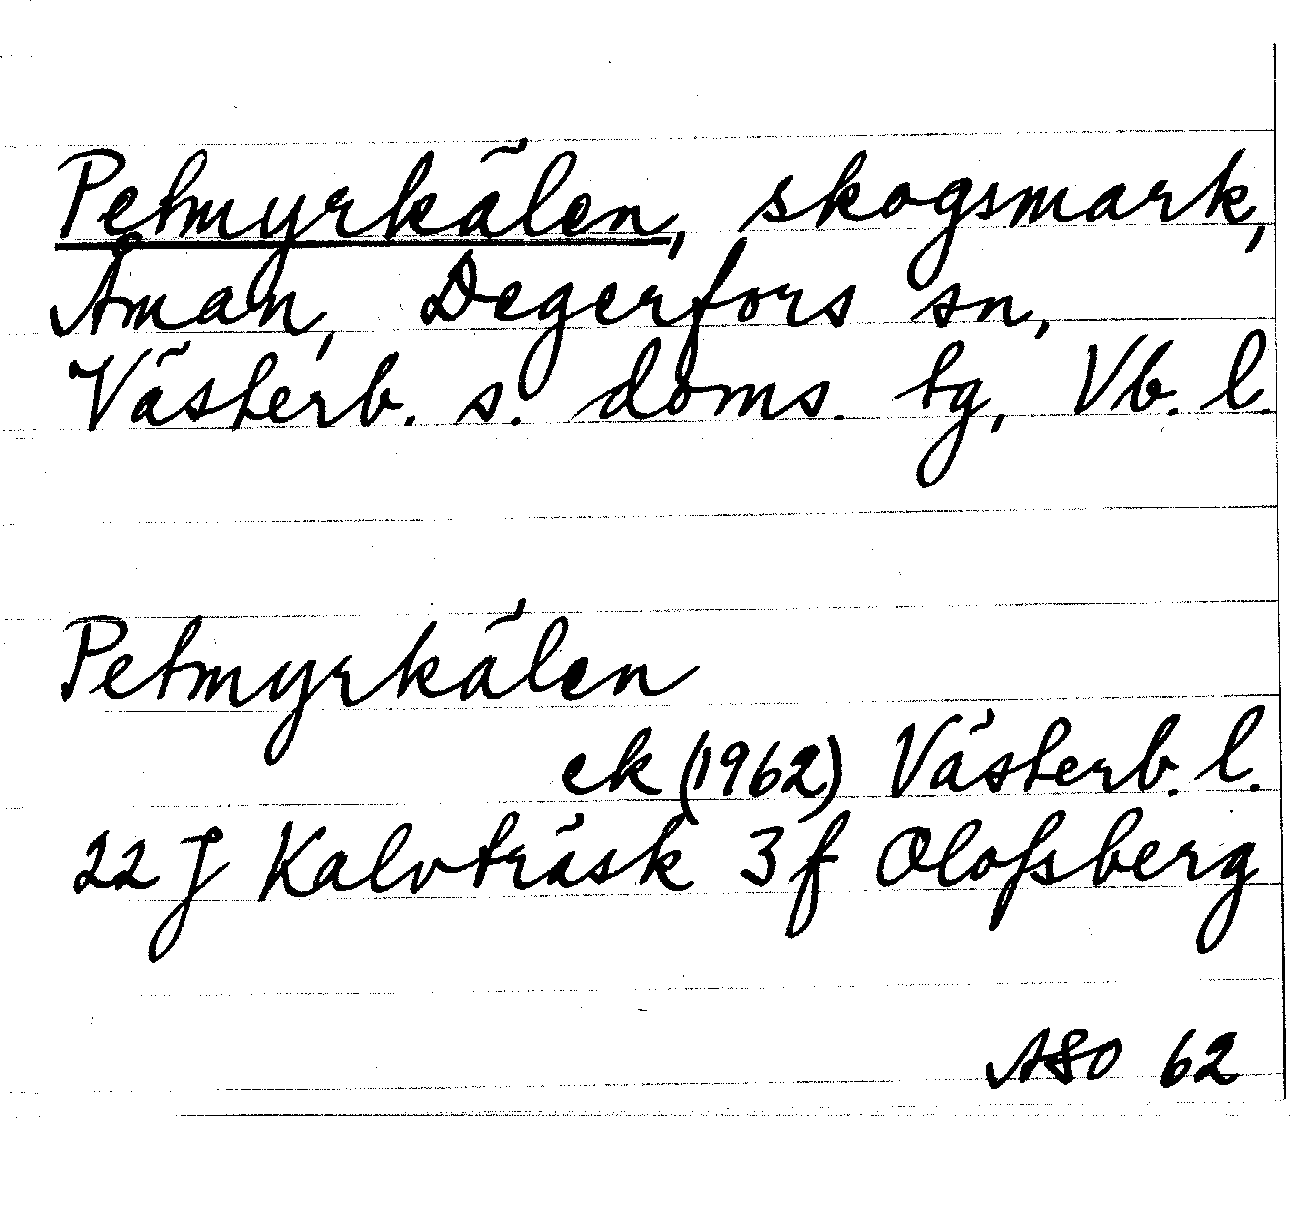 Petmyrkälen, skogsmark,
Åman, Degerfors sn,
Västerb. s. doms. tg, Vb. l.
Petmyrkälen
ek (1962) Västerb. l.
22 J Kalvträsk 3 f Olofsberg
ASO 62